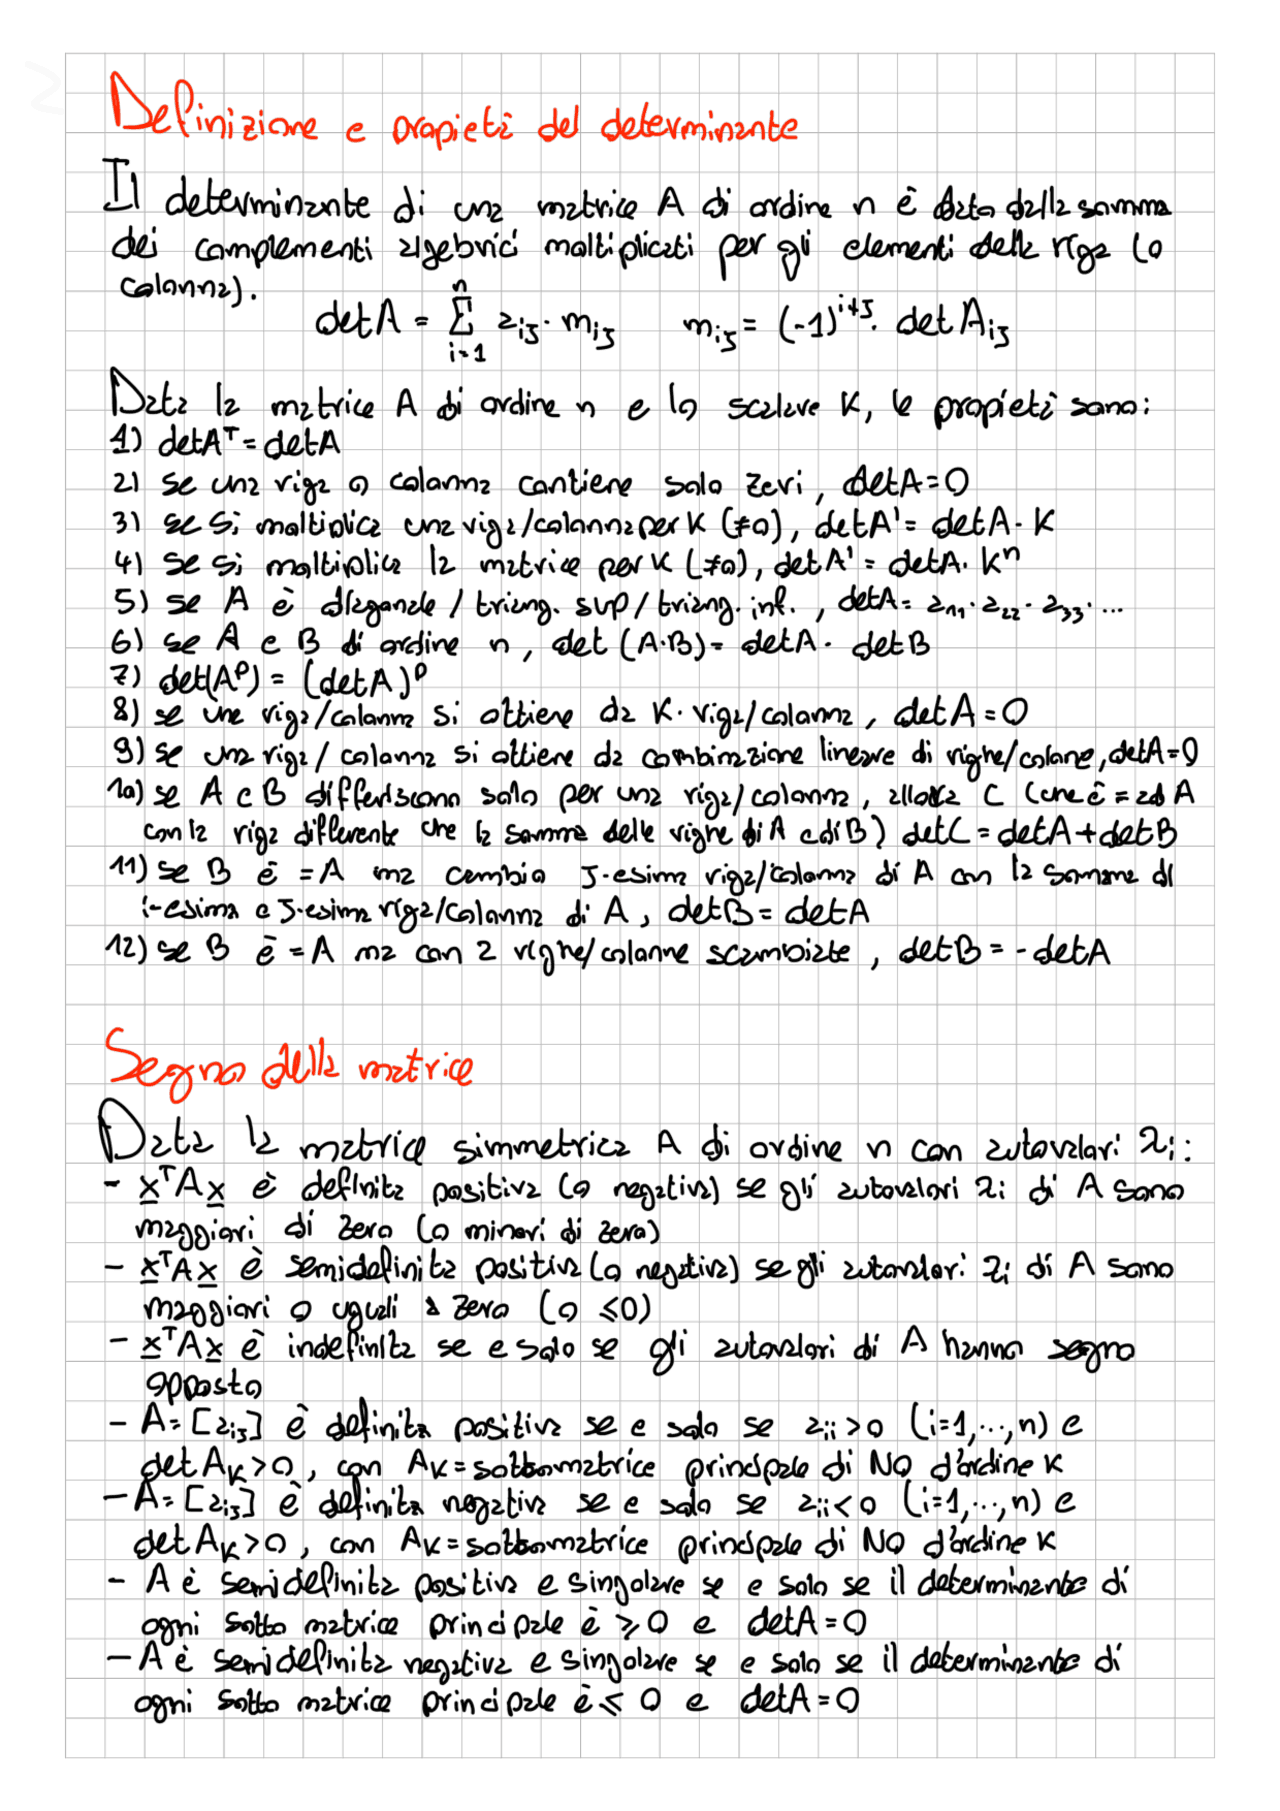 Definizione e propietà del determinante
Il determinante di una matrice A di ordine n è dato dalla somma
dei complementi algebrici moltiplicati per gli elementi della riga (o
colonna).
detA = Σ aij · mij    mij = (-1)^(i+j) · detAij
n
i=1
Data la matrice A di ordine n e lo scalare K, le propietà sono:
1) detAᵀ = detA
2) se una riga o colonna contiene solo zeri, detA=0
3) se si moltiplica una riga/colonna per K (≠0), detA' = detA · K
4) se si moltiplica la matrice per K (≠0), detA' = detA · Kⁿ
5) se A è diagonale / triang. sup / triang. inf., detA = a₁₁ · a₂₂ · a₃₃ · ...
6) se A e B di ordine n, det (A·B) = detA · detB
7) det(Aᵖ) = (detA)ᵖ
8) se una riga/colonna si ottiene da K · riga/colonna, detA = 0
9) se una riga/ colonna si ottiene da combinazione lineare di righe/colone, detA=0
10) se A e B differiscono solo per una riga/colonna, allora C (che è = ad A
con la riga differente che la somma delle righe di A e di B) detC = detA + detB
11) se B è = A ma cambio J-esima riga/colonna di A con la somma di
i-esima e J-esima riga/colonna di A, detB = detA
12) se B è = A ma con 2 righe/colonne scambiate, detB = - detA
Segno della matrice
Data la matrice simmetrica A di ordine n con autovalori λi:
- xᵀAx è definita positiva (o negativa) se gli autovalori λi di A sono
maggiori di zero (o minori di zero)
- xᵀAx è semidefinita positiva (o negativa) se gli autovalori λi di A sono
maggiori o uguali a zero (o ≤0)
- xᵀAx è indefinita se e solo se gli autovalori di A hanno segno
opposto
- A = [aij] è definita positiva se e solo se aii>0 (i=1,...,n) e
detAK>0, con AK = sottomatrice principale di NO d'ordine K
- A = [aij] è definita negativa se e solo se aii<0 (i=1,...,n) e
detAK>0, con AK = sottomatrice principale di NO d'ordine K
- A è semidefinita positiva e singolare se e solo se il determinante di
ogni sotto matrice principale è ≥ 0 e detA=0
- A è semidefinita negativa e singolare se e solo se il determinante di
ogni sotto matrice principale è ≤ 0 e detA=0